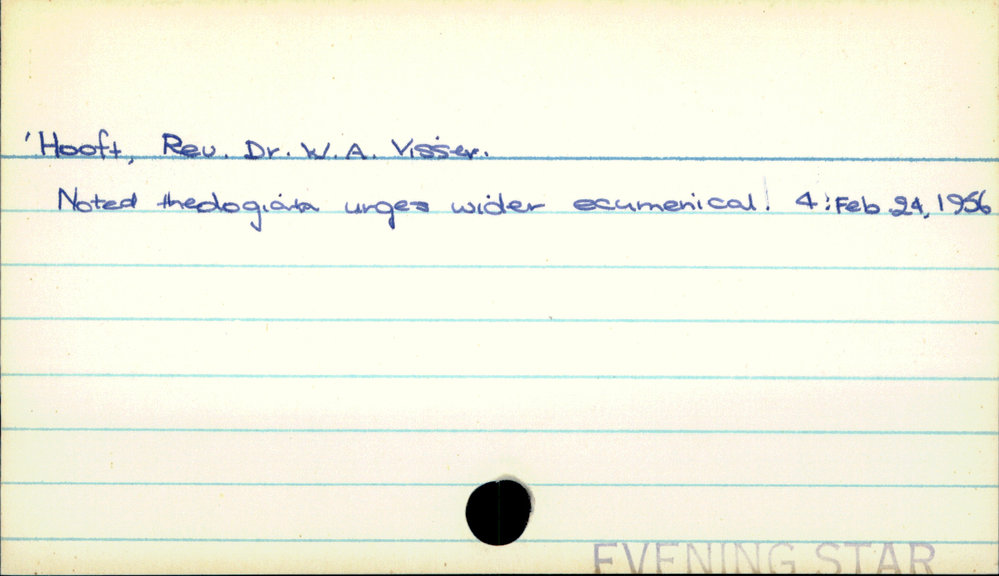 'Hooft, Rev. Dr. W.A. Visser.
Noted theologian urges wider ecumenical! 4:Feb 24, 1956
EVENING STAR